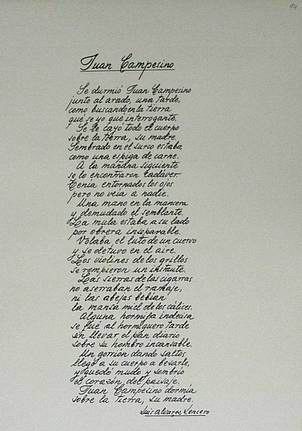 Juan Campesino
Se durmió Juan Campesino
junto al arado, una tarde,
como buscando en la tierra
qué se yo que interrogante.
Se le cayó todo el cuerpo
sobre la tierra, su madre.
Sembrado en el surco estaba
como una espiga de carne.
A la mañana siguiente
se lo encontraron cadáver.
Tenía entornados los ojos
pero no veía a nadie.
Una mano en la mancera
y demudado el semblante.
La mula estaba a su lado
por obrera inseparable.
Volaba el luto de un cuervo
y se detuvo en el aire.
Los violines de los grillos
se rompieron un instante.
Las sierras de las cigarras
no aserraban el ramaje,
ni las abejas bebían
la mansa miel de los cálices.
Alguna hormiga indecisa
se fué al hormiguero tarde
sin llevar el pan diario
sobre su hombro incansable.
Un gorrión dando saltos
llegó a su cuerpo a besarle,
y quedó mudo y sombrío
el corazón, del paisaje.
Juan Campesino dormía
sobre la tierra, su madre.
Luis Alvarez